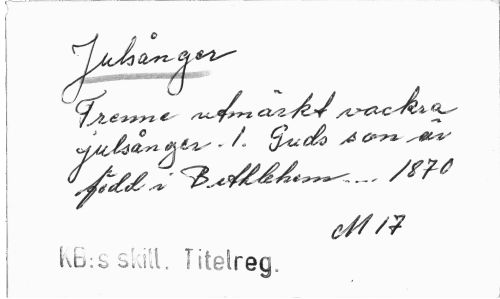 Julsånger
Trenne utmärkt vackra
julsånger. 1. Guds son är
född i Bethlehem.... 1870
M 17
KB:s skill. Titelreg.